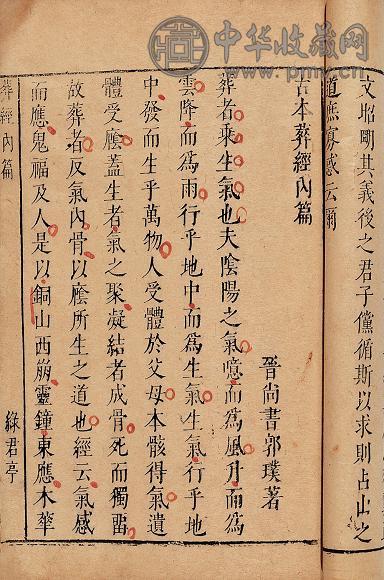 中华收藏网
www.pmw.cn
文昭剛其義後之君子儻循斯以求則占山之
道譙寡感云爾
古本葬經內篇
晉尚書郭璞著
葬者乘生氣也夫陰陽之氣噫而爲風升而爲
雲降而爲雨行乎地中而爲生氣生氣行乎地
中發而生乎萬物人受體於父母本骸得氣遺
體受廕蓋生者氣之聚凝結者成骨死而獨畱
故葬者反氣內骨以廕所生之道也經云氣感
而應鬼福及人是以銅山西崩靈鐘東應木華
葬經內篇
綠君亭